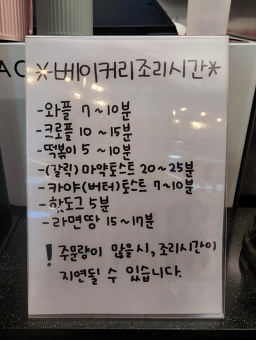 *베이커리조리시간*
-와플 7~10분
-크로플 10~15분
-떡볶이 5~10분
-(갈릭)마약토스트 20~25분
-카야(버터)토스트 7~10분
-핫도그 5분
-라면땅 15~17분
! 주문량이 많을시, 조리시간이
지연될 수 있습니다.